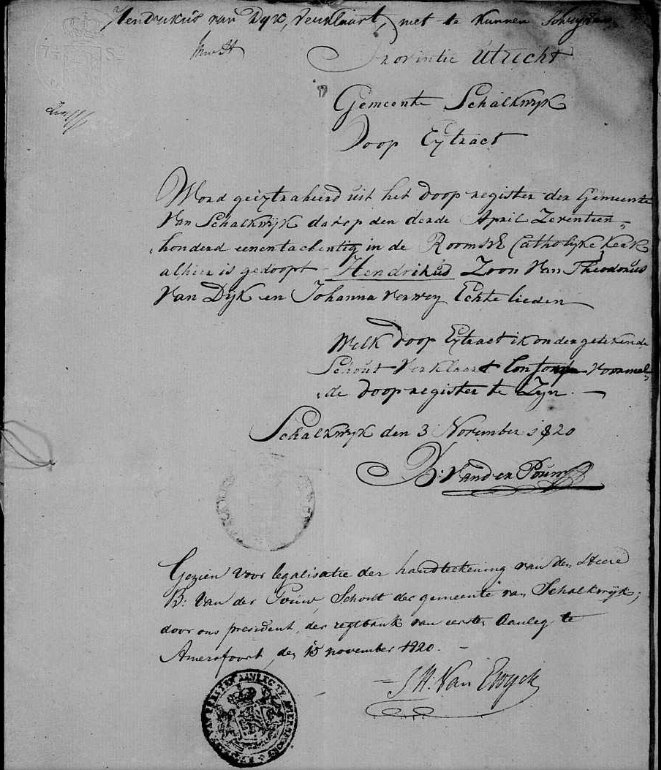 Hendrikus van Dyk, verklaart, niet te kunnen Schryven
Provintie Utrecht
Gemeente Schalkwyk
Doop Extract
Word geextraheerd uit het doop register der Gemeente
Van Schalkwyk dat op den derde April Zeventien
honderd eenentachentig in de Roomsche Catholyke Kerk
alhier is gedoopt Hendrikus Zoon Van Theodorus
Van Dyk en Johanna verwey Echte lieden
Welk doop Extract ik ondergetekende
Schout Verklaart Conform voormel
de doopregister te Zyn.
Schalkwyk den 3 November 1820
B: Vand en
Gezien voor legalisatie der handtekening van den Heere
B: Van der Schout der gemeente van Schalkwyk;
door ons president der regtbank van eersten Aanleg te
Amersfoort, den 15 november 1820.
J. H. Van Ewyck